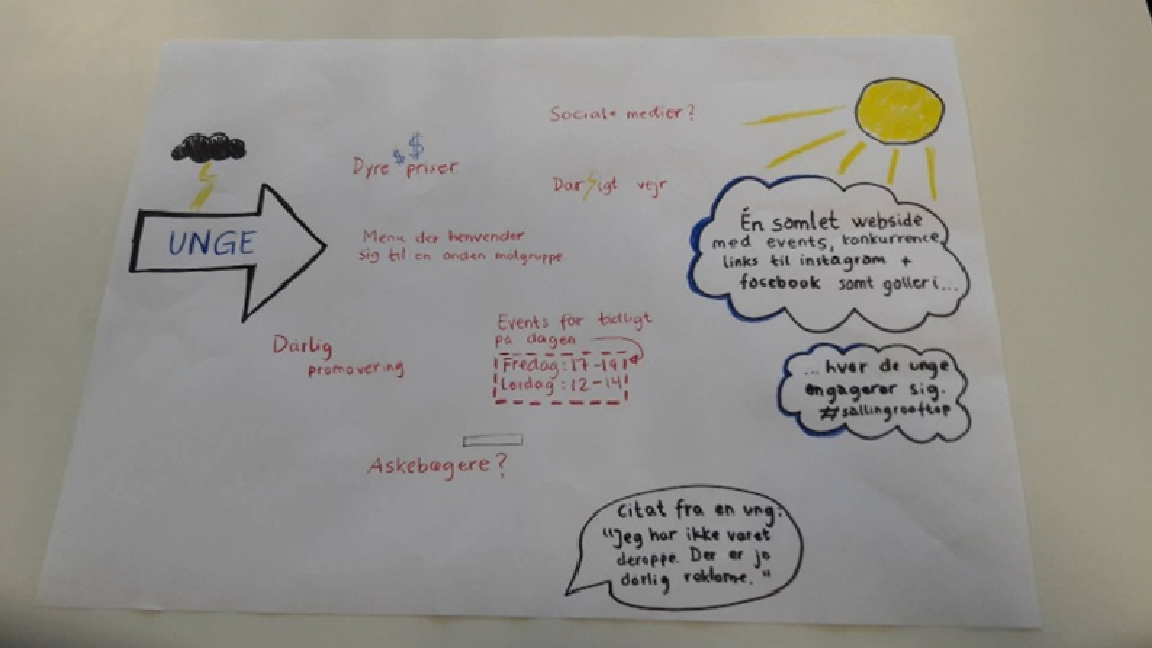 Sociale medier?
Dyre $ $ priser
Darligt vejr
UNGE
Menu der henvender
sig til en anden målgruppe
Én samlet webside
med events, konkurrence,
links til instagram +
facebook samt galleri...
Events for tidligt
på dagen
Fredag: 17-19
Lørdag: 12-14
Dårlig
promovering
... hvor de unge
engagerer sig.
#sallingrooftop
Askebægere?
Citat fra en ung:
"Jeg har ikke været
deroppe. Der er jo
dårlig reklame."